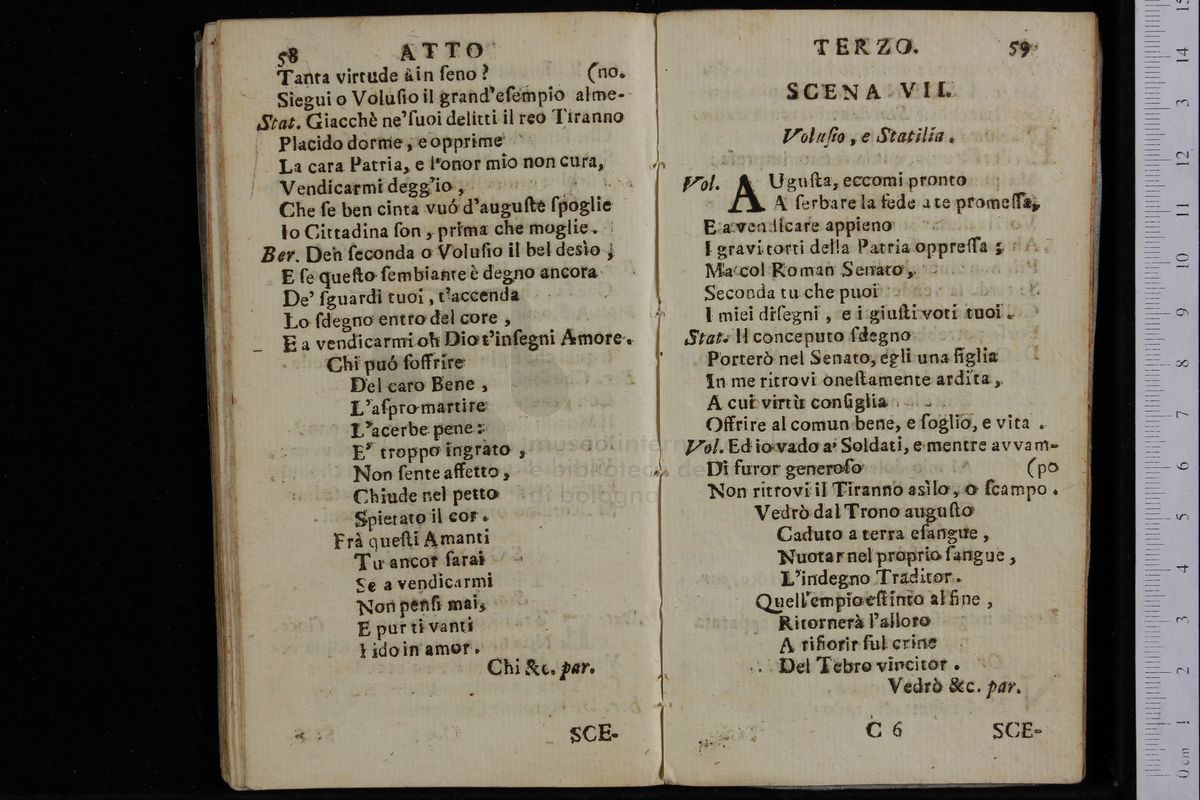 58 ATTO
Tanta virtude ài in ſeno ? (no.
Siegui o Voluſio il grand'eſempio alme-
Stat. Giacchè ne'ſuoi delitti il reo Tiranno
Placido dorme, e opprime
La cara Patria, e l'onor mio non cura,
Vendicarmi degg'io ,
Che ſe ben cinta vuó d'auguſte ſpoglie
Io Cittadina ſon , prima che moglie.
Ber. Deh ſeconda o Voluſio il bel desìo ;
E ſe queſto ſembiante è degno ancora
De' ſguardi tuoi , t'accenda
Lo ſdegno entro del core ,
E a vendicarmi oh Dio t'inſegni Amore.
Chi puó ſoffrire
Del caro Bene ,
L'aſpro martire
L'acerbe pene :
E' troppo ingrato ,
Non ſente affetto ,
Chiude nel petto
Spietato il cor .
Frà queſti Amanti
Tu ancor ſarai
Se a vendicarmi
Non penſi mai,
E pur ti vanti
Fido in amor .
Chi &c. par.
SCE-
TERZO. 59
SCENA VII.
Voluſio , e Statilia .
Vol. AUguſta, eccomi pronto
A ſerbare la fede a te promeſſa,
E a vendicare appieno
I gravi torti della Patria oppreſſa ;
Ma col Roman Senato,
Seconda tu che puoi
I miei diſegni , e i giuſti voti tuoi .
Stat. Il conceputo ſdegno
Porterò nel Senato, egli una figlia
In me ritrovi oneſtamente ardita ,
A cui virtù conſiglia
Offrire al comun bene, e ſoglio, e vita .
Vol. Ed io vado a' Soldati, e mentre avvam-
Di furor generoſo (po
Non ritrovi il Tiranno asìlo , o ſcampo .
Vedrò dal Trono auguſto
Caduto a terra eſangue ,
Nuotar nel proprio ſangue ,
L'indegno Traditor .
Quell'empio eſtinto al fine ,
Ritornerà l'alloro
A rifiorir ſul crine
Del Tebro vincitor .
Vedrò &c. par.
C 6 SCE-